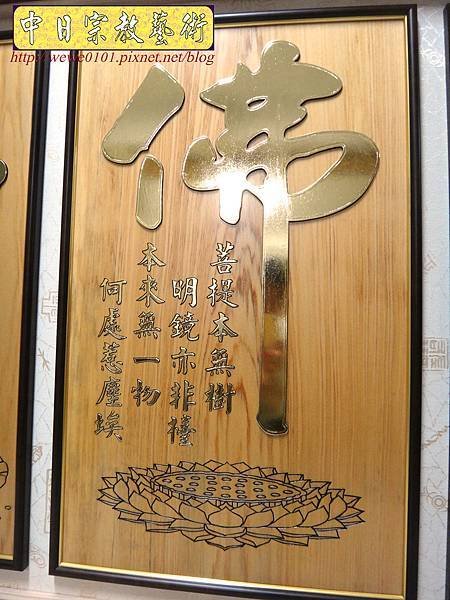 中日宗教藝術
http://wewe0101.pixnet.net/blog
佛
菩提本無樹
明鏡亦非檯
本來無一物
何處惹塵埃